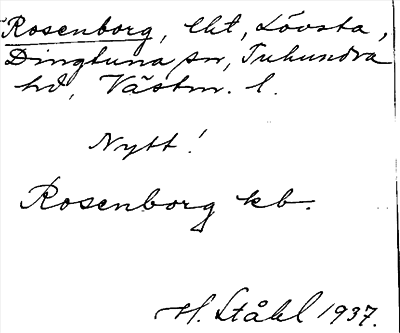 Rosenborg, lht, Lövsta,
Dingtuna sn, Tuhundra
hd, Västm. l.
Nytt!
Rosenborg kb.
H. Ståhl 1937.